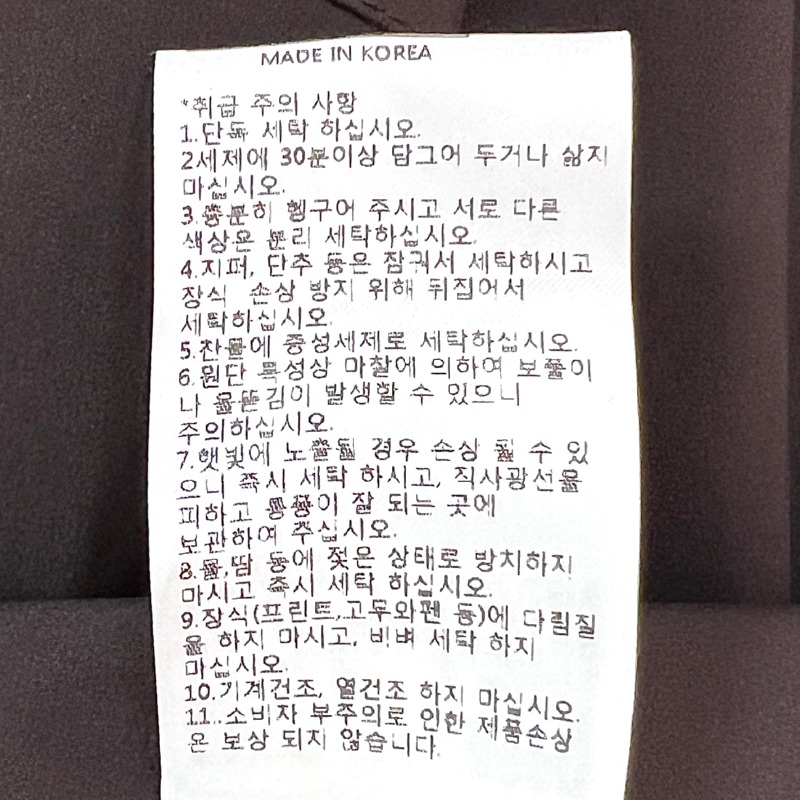 MADE IN KOREA
*취급 주의 사항
1.단독 세탁 하십시오.
2세제에 30분이상 담그어 두거나 삶지
마십시오.
3.충분히 헹구어 주시고 서로 다른
색상은 분리 세탁하십시오.
4.지퍼, 단추 등은 잠궈서 세탁하시고
장식 손상 방지 위해 뒤집어서
세탁하십시오.
5.찬물에 중성세제로 세탁하십시오.
6.원단 특성상 마찰에 의하여 보풀이
나 올뜯김이 발생할 수 있으니
주의하십시오.
7.햇빛에 노출될 경우 손상 될 수 있
으니 즉시 세탁 하시고, 직사광선을
피하고 통풍이 잘 되는 곳에
보관하여 주십시오.
8.물,땀 등에 젖은 상태로 방치하지
마시고 즉시 세탁 하십시오.
9.장식(프린트,고무와펜 등)에 다림질
을 하지 마시고, 비벼 세탁 하지
마십시오.
10.기계건조, 열건조 하지 마십시오.
11..소비자 부주의로 인한 제품손상
은 보상 되지 않습니다.